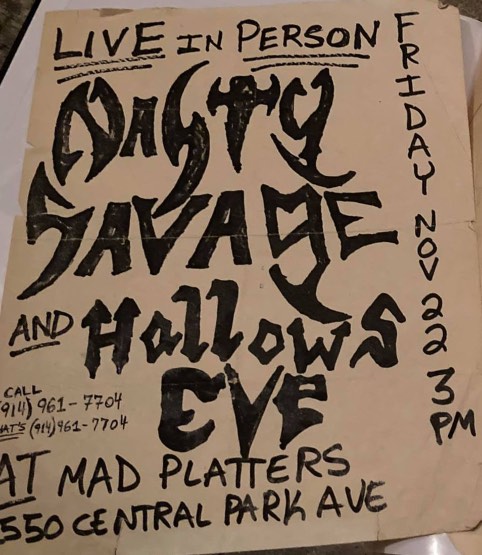 LIVE IN PERSON
NASTY
SAVAGE
AND Hallows
EVE
FRIDAY NOV 22 3 PM
CALL
(914) 961-7704
(914) 961-7704
AT MAD PLATTERS
550 CENTRAL PARK AVE